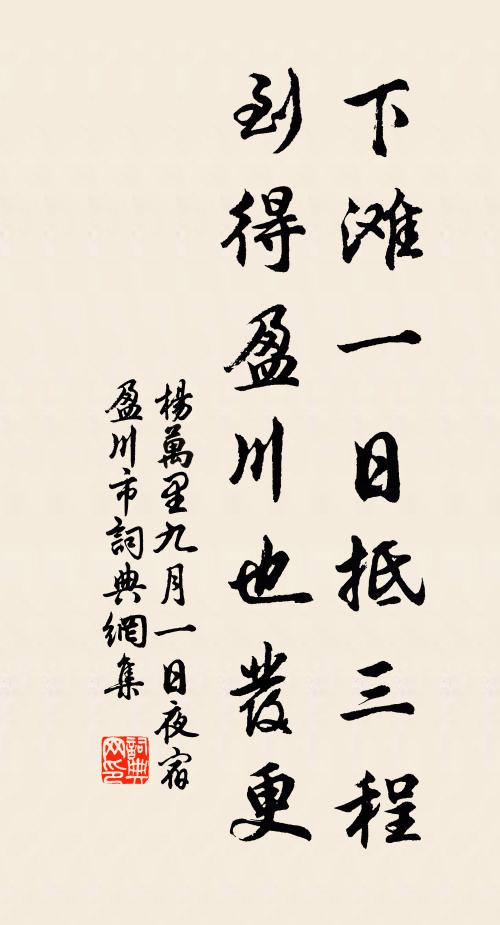 下滩一日抵三程
到得盈川也發更
楊萬里九月一日夜宿
盈川市詞典網集
詞典网印